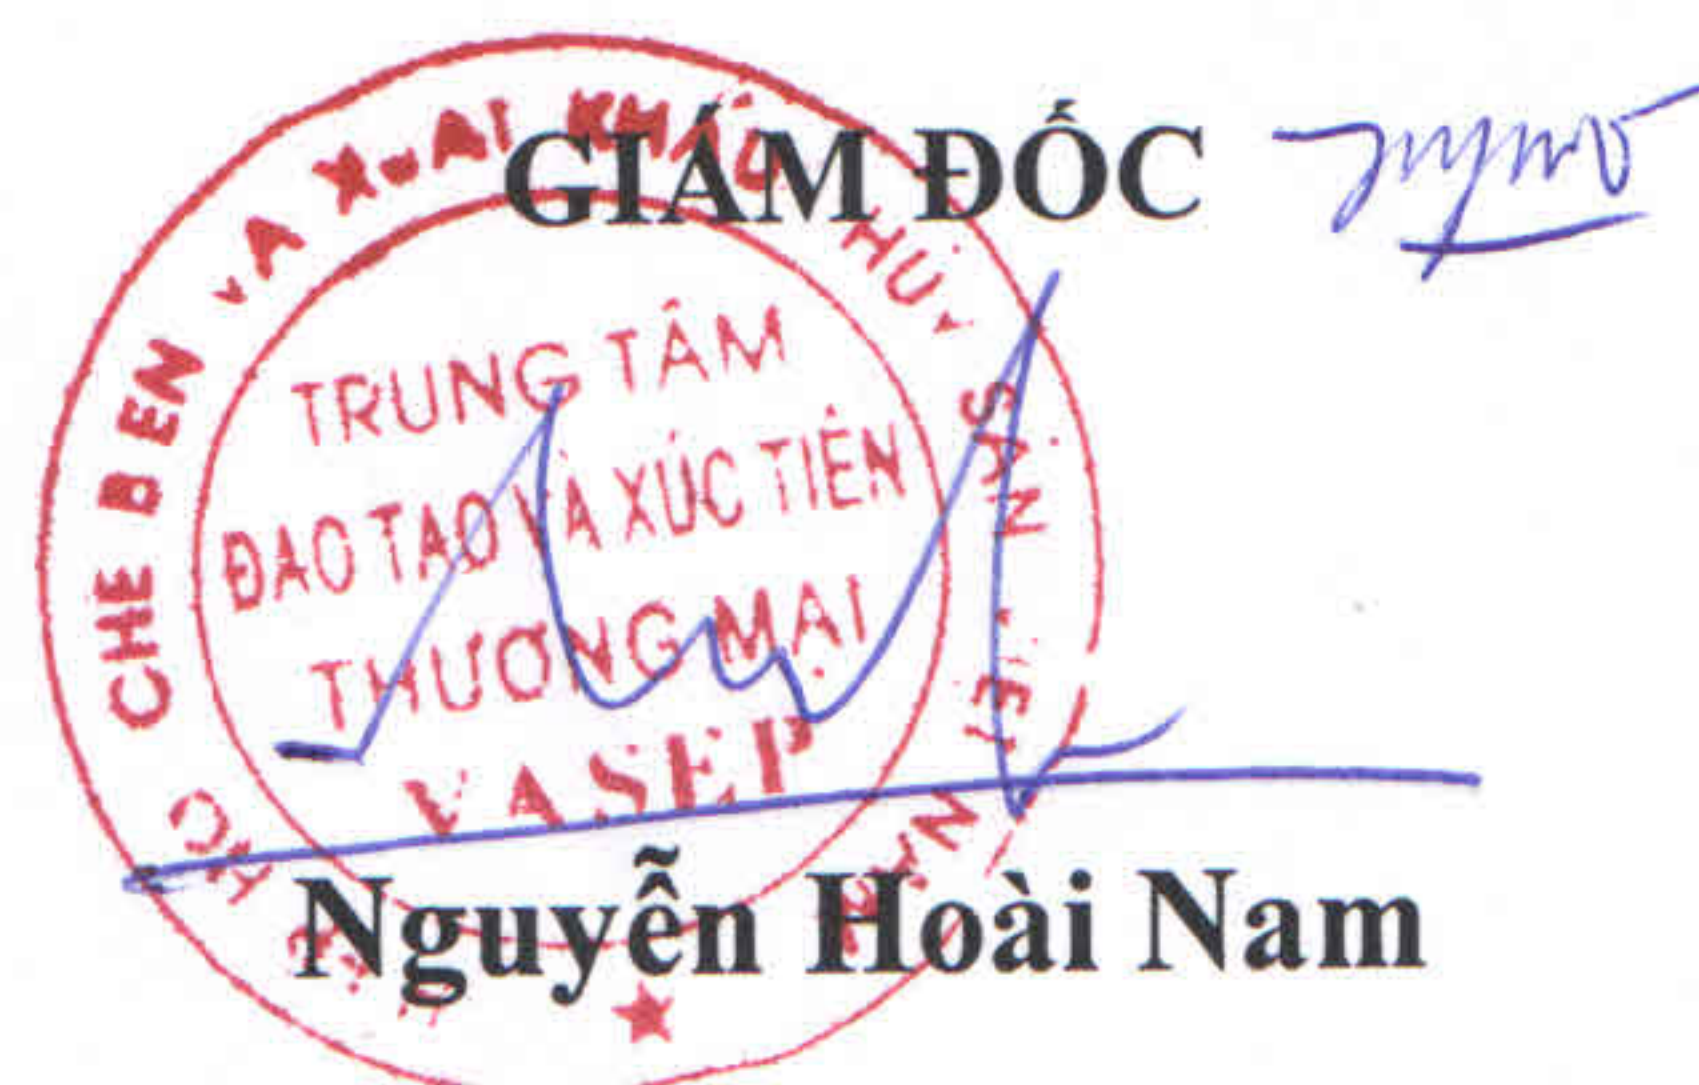 GIÁM ĐỐC
CHẾ BIẾN VÀ XUẤT KHẨU THỦY SẢN VIỆT NAM
TRUNG TÂM
ĐÀO TẠO VÀ XÚC TIẾN
THƯƠNG MẠI
VASEP
Nguyễn Hoài Nam